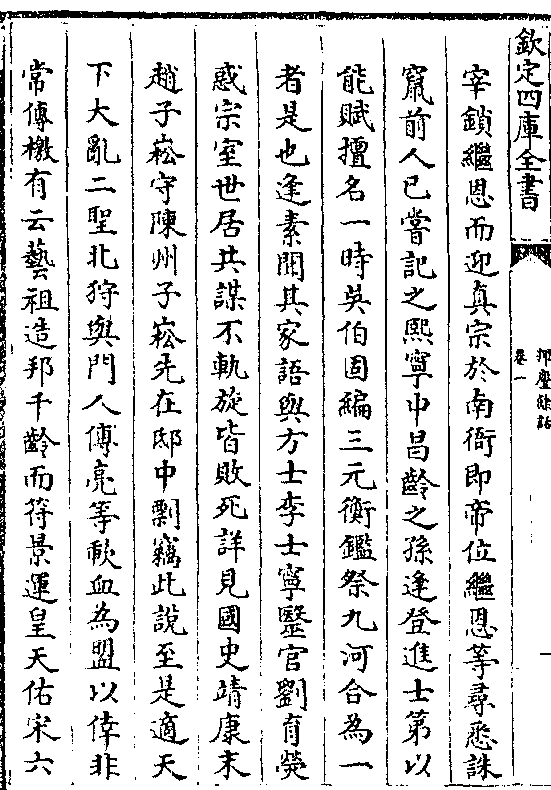 欽定四庫全書
揮麈餘話
卷一
宰鎖繼恩而迎真宗於南衙即帝位繼恩等尋悉誅
竄前人已嘗記之熙寧中昌齡之孫逢登進士第以
能賦擅名一時吳伯固編三元衡鑑祭九河合為一
者是也逢素聞其家語與方士李士寧毉官劉育熒
惑宗室世居共謀不軌旋皆敗死詳見國史靖康末
趙子崧守陳州子崧先在邸中剽竊此說至是適天
下大亂二聖北狩與門人傅亮等歃血為盟以倖非
常傳檄有云藝祖造邦千齡而符景運皇天佑宋六